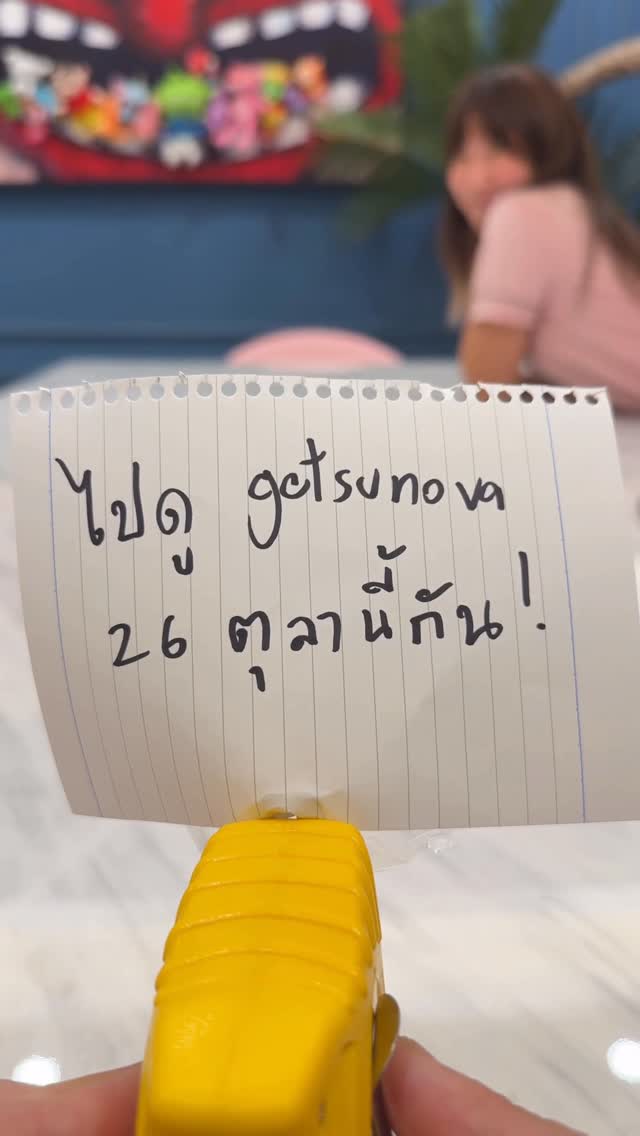 ไปดู getsunova
26 ตุลานี้กัน!